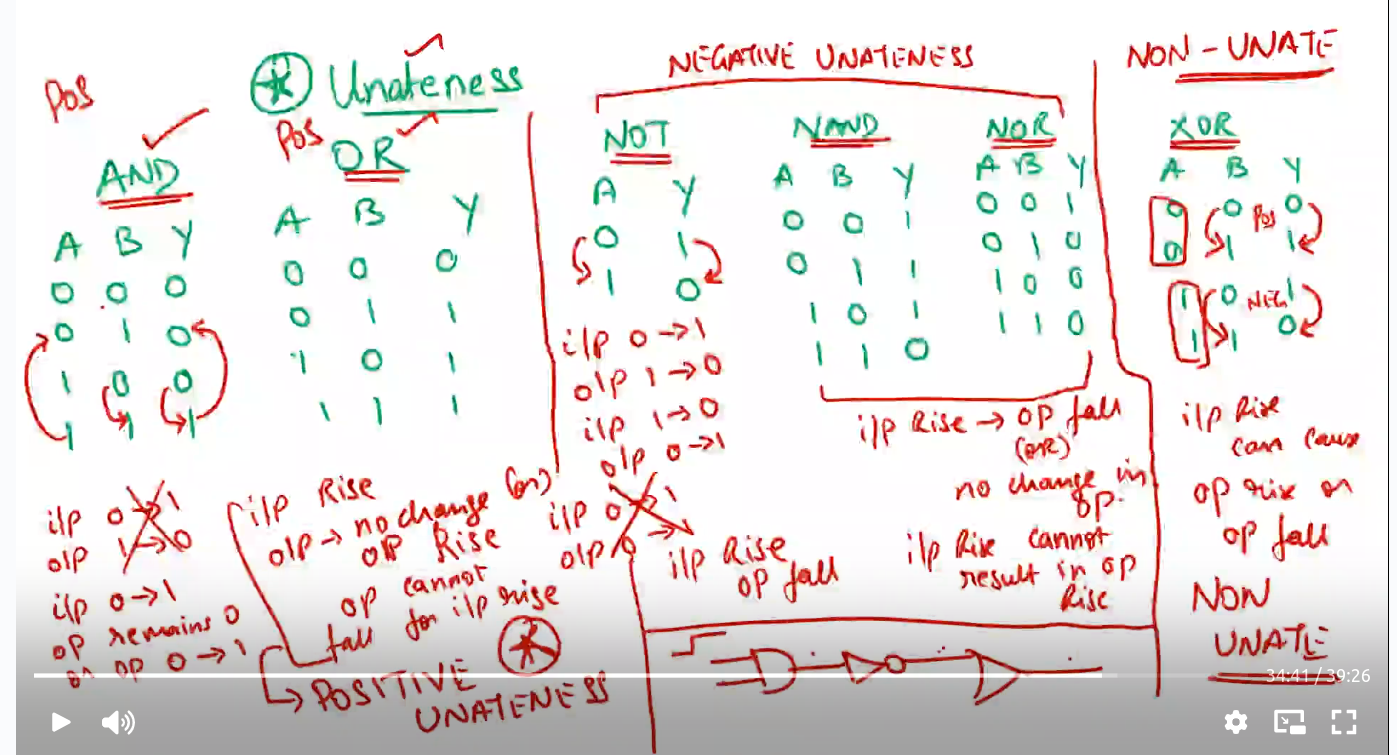 Unateness
POS
AND
A B Y
0 0 0
0 1 0
1 0 0
1 1 1
i/p 0→1
o/p 1→0
i/p 0→1
op remains 0
or op 0→1
POS
OR
A B Y
0 0 0
0 1 1
1 0 1
1 1 1
i/p Rise
o/p → no change (or)
o/p Rise
op cannot
fall for i/p rise
POSITIVE
UNATENESS
NEGATIVE UNATENESS
NOT
A Y
0 1
1 0
i/p 0→1
o/p 1→0
i/p 1→0
o/p 0→1
i/p 0→1
o/p 0→1
i/p Rise
op fall
NAND
A B Y
0 0 1
0 1 1
1 0 1
1 1 0
NOR
A B Y
0 0 1
0 1 0
1 0 0
1 1 0
i/p Rise → op fall
(OR)
no change in
op.
i/p Rise cannot
result in op
Rise
NON-UNATE
XOR
A B Y
0 0 POS 0
0 1 1
1 0 NEG 1
1 1 0
i/p Rise
can cause
op rise or
op fall
NON
UNATE
34:41 / 39:26